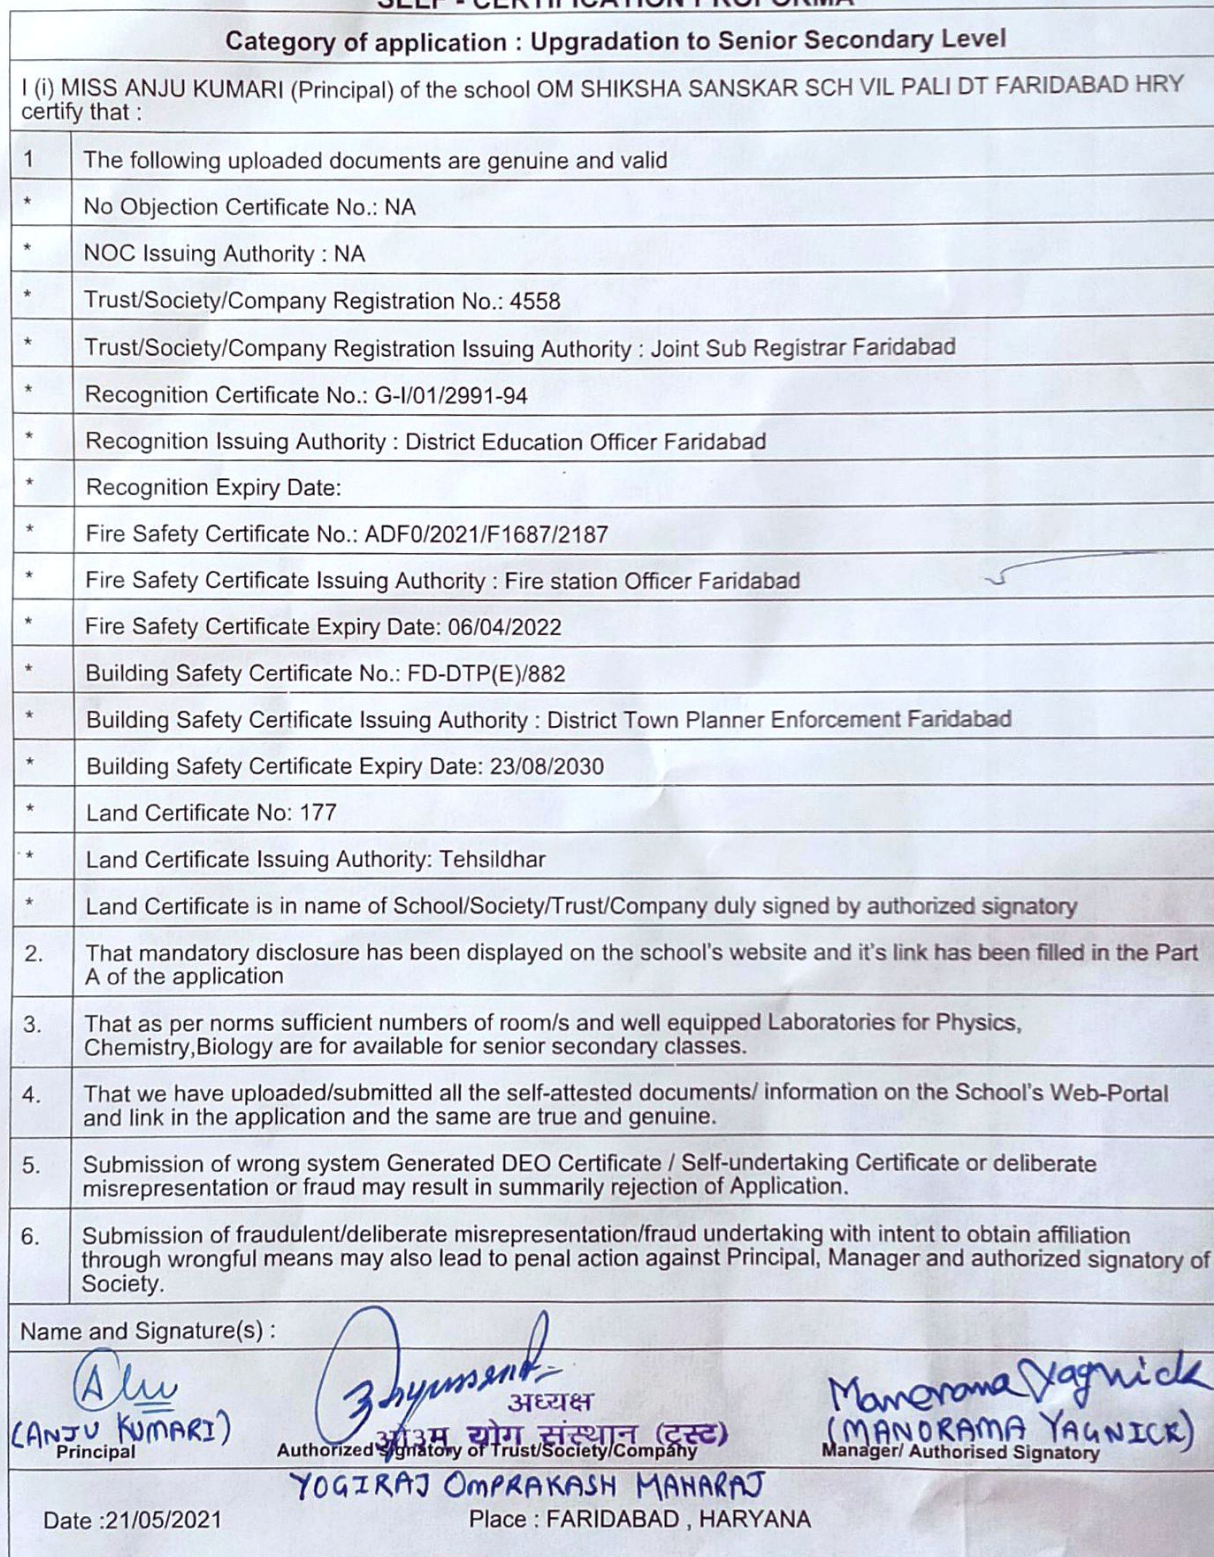 SELF - CERTIFICATION PROFORMA
Category of application : Upgradation to Senior Secondary Level
I (i) MISS ANJU KUMARI (Principal) of the school OM SHIKSHA SANSKAR SCH VIL PALI DT FARIDABAD HRY
certify that :
1 The following uploaded documents are genuine and valid
* No Objection Certificate No.: NA
* NOC Issuing Authority : NA
* Trust/Society/Company Registration No.: 4558
* Trust/Society/Company Registration Issuing Authority : Joint Sub Registrar Faridabad
* Recognition Certificate No.: G-I/01/2991-94
* Recognition Issuing Authority : District Education Officer Faridabad
* Recognition Expiry Date:
* Fire Safety Certificate No.: ADF0/2021/F1687/2187
* Fire Safety Certificate Issuing Authority : Fire station Officer Faridabad
* Fire Safety Certificate Expiry Date: 06/04/2022
* Building Safety Certificate No.: FD-DTP(E)/882
* Building Safety Certificate Issuing Authority : District Town Planner Enforcement Faridabad
* Building Safety Certificate Expiry Date: 23/08/2030
* Land Certificate No: 177
* Land Certificate Issuing Authority: Tehsildhar
* Land Certificate is in name of School/Society/Trust/Company duly signed by authorized signatory
2. That mandatory disclosure has been displayed on the school's website and it's link has been filled in the Part
A of the application
3. That as per norms sufficient numbers of room/s and well equipped Laboratories for Physics,
Chemistry,Biology are for available for senior secondary classes.
4. That we have uploaded/submitted all the self-attested documents/ information on the School's Web-Portal
and link in the application and the same are true and genuine.
5. Submission of wrong system Generated DEO Certificate / Self-undertaking Certificate or deliberate
misrepresentation or fraud may result in summarily rejection of Application.
6. Submission of fraudulent/deliberate misrepresentation/fraud undertaking with intent to obtain affiliation
through wrongful means may also lead to penal action against Principal, Manager and authorized signatory of
Society.
Name and Signature(s) :
Manorama Yagnick
अध्यक्ष
(ANJU KUMARI) ओ३म् योग संस्थान (ट्रस्ट) (MANORAMA YAGNICK)
Principal Authorized Signatory of Trust/Society/Company Manager/ Authorised Signatory
YOGIRAJ OMPRAKASH MAHARAJ
Date :21/05/2021 Place : FARIDABAD , HARYANA